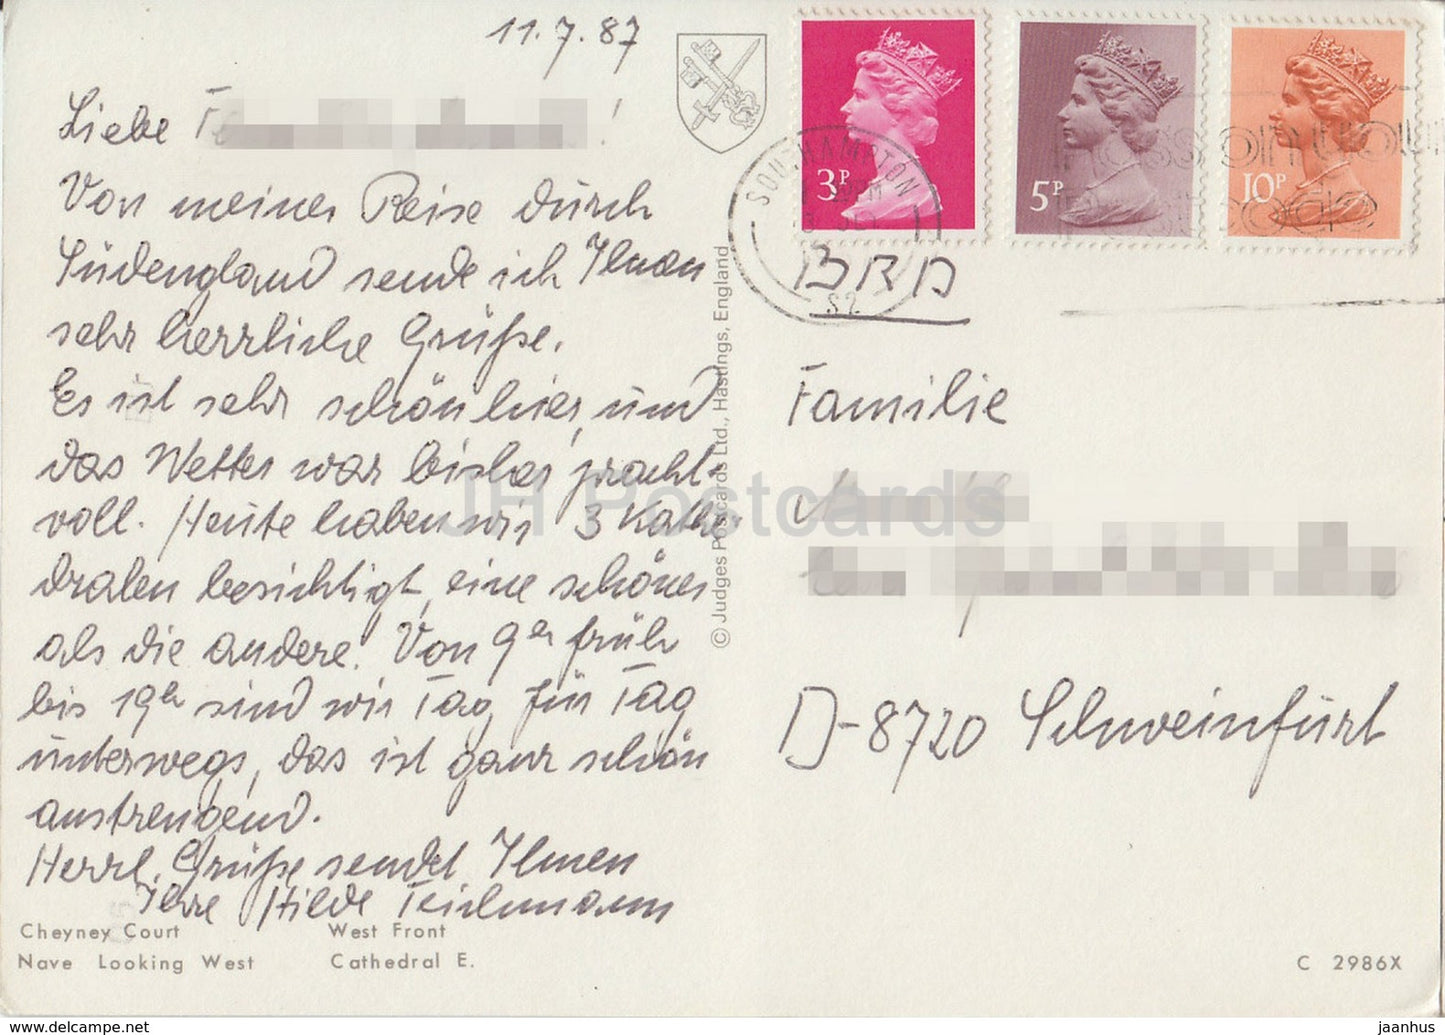 11.7.87
Liebe
Von meiner Reise durch
Südengland sende ich Ihnen
sehr herzliche Grüße.
Es ist sehr schön hier, und
das Wetter war bisher pracht-
voll. Heute haben wir 3 Kathe-
dralen besichtigt, eine schöner
als die andere! Von 9h früh
bis 19h sind wir Tag für Tag
unterwegs, das ist ganz schön
anstrengend.
Herzl. Grüße sendet Ihnen
Ihre Hilde Teichmann
Cheyney Court West Front
Nave Looking West Cathedral E.
© Judges Postcards Ltd., Hastings, England
3P
5P
10P
SOUTHAMPTON
S2
BRD
Familie
D-8720 Schweinfurt
C 2986X
JH Postcards
www.delcampe.net
jaanhus